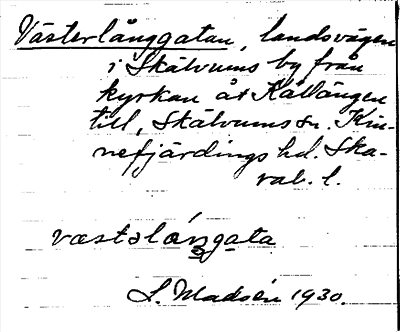 Västerlånggatan, landsvägen
i Skälvums by från
kyrkan åt Källängen
till, Skälvums sn. Kin-
nefjärdings hd. Ska-
rab. l.
væstəláŋgata
S. Madsén 1930.